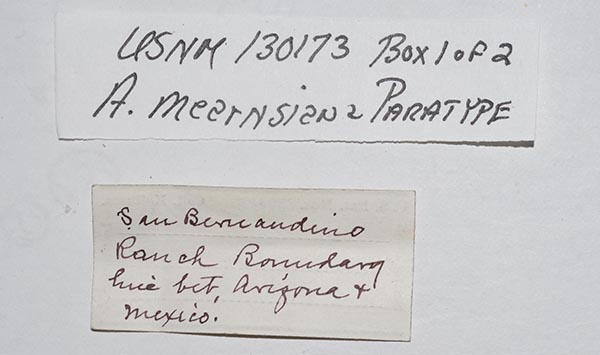 USNM 130173 Box 1 of 2
A. mearnsiana PARATYPE
San Bernandino
Ranch Boundary
line bet, Arizona &
Mexico.